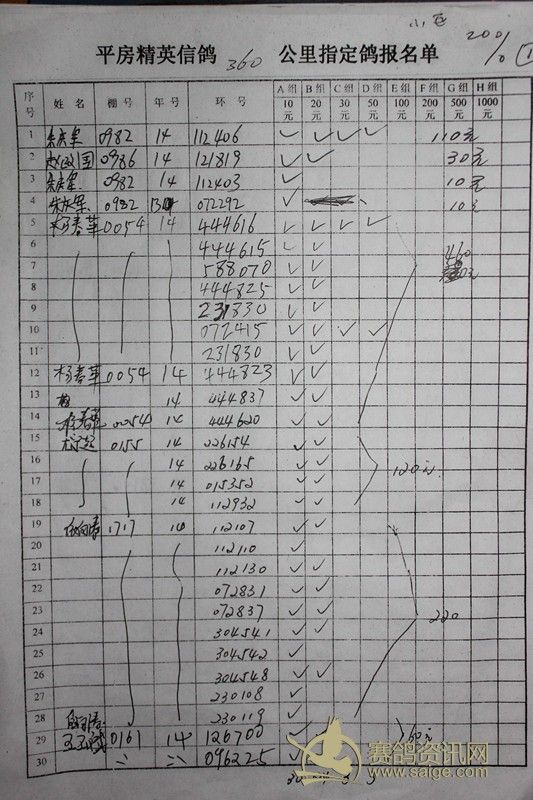 2001
10 1
平房精英信鸽 360 公里指定鸽报名单
序号 姓名 棚号 年号 环号 A组10元 B组20元 C组30元 D组50元 E组100元 F组200元 G组500元 H组1000元
1 0982 14 112406 ✓ ✓ ✓ ✓ 110元
2 0986 14 121819 ✓ ✓ 30元
3 0982 14 112403 ✓ 10元
4 0982 13 072292 ✓ 10元
5 杨春革 0054 14 444616 ✓ ✓ ✓ ✓
6 444615 ✓ ✓ 460
7 588070 ✓ ✓
8 444825 ✓ ✓
9 231830 ✓ ✓
10 072415 ✓ ✓ ✓ ✓
11 231830 ✓ ✓
12 杨春革 0054 14 444823 ✓ ✓
13 14 444837 ✓ ✓
14 杨春革 0054 14 444620 ✓ ✓
15 0155 14 226154 ✓ ✓
16 14 226165 ✓ ✓ 120元
17 14 015352 ✓ ✓
18 14 112932 ✓ ✓
19 1717 14 112107 ✓ ✓
20 112110 ✓
21 112130 ✓ ✓
22 072831 ✓ ✓
23 072837 ✓ ✓ 220
24 304541 ✓ ✓
25 304542 ✓
26 304548 ✓ ✓
27 230108 ✓
28 230119 ✓
29 0161 14 126700 ✓ ✓ 60元
30 096225 ✓ ✓
赛鸽资讯网
www.saige.com